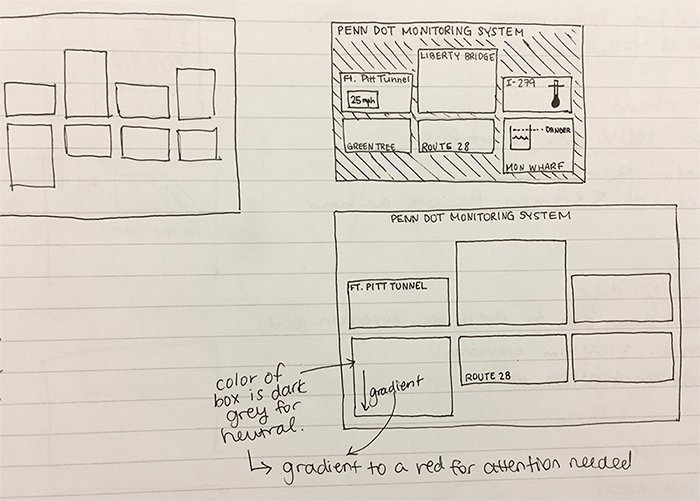 PENN DOT MONITORING SYSTEM
LIBERTY BRIDGE
Ft. Pitt Tunnel
25 mph
I-279
GREEN TREE
ROUTE 28
DANGER
MON WHARF
PENN DOT MONITORING SYSTEM
FT. PITT TUNNEL
ROUTE 28
gradient
color of
box is dark
grey for
neutral.
gradient to a red for attention needed